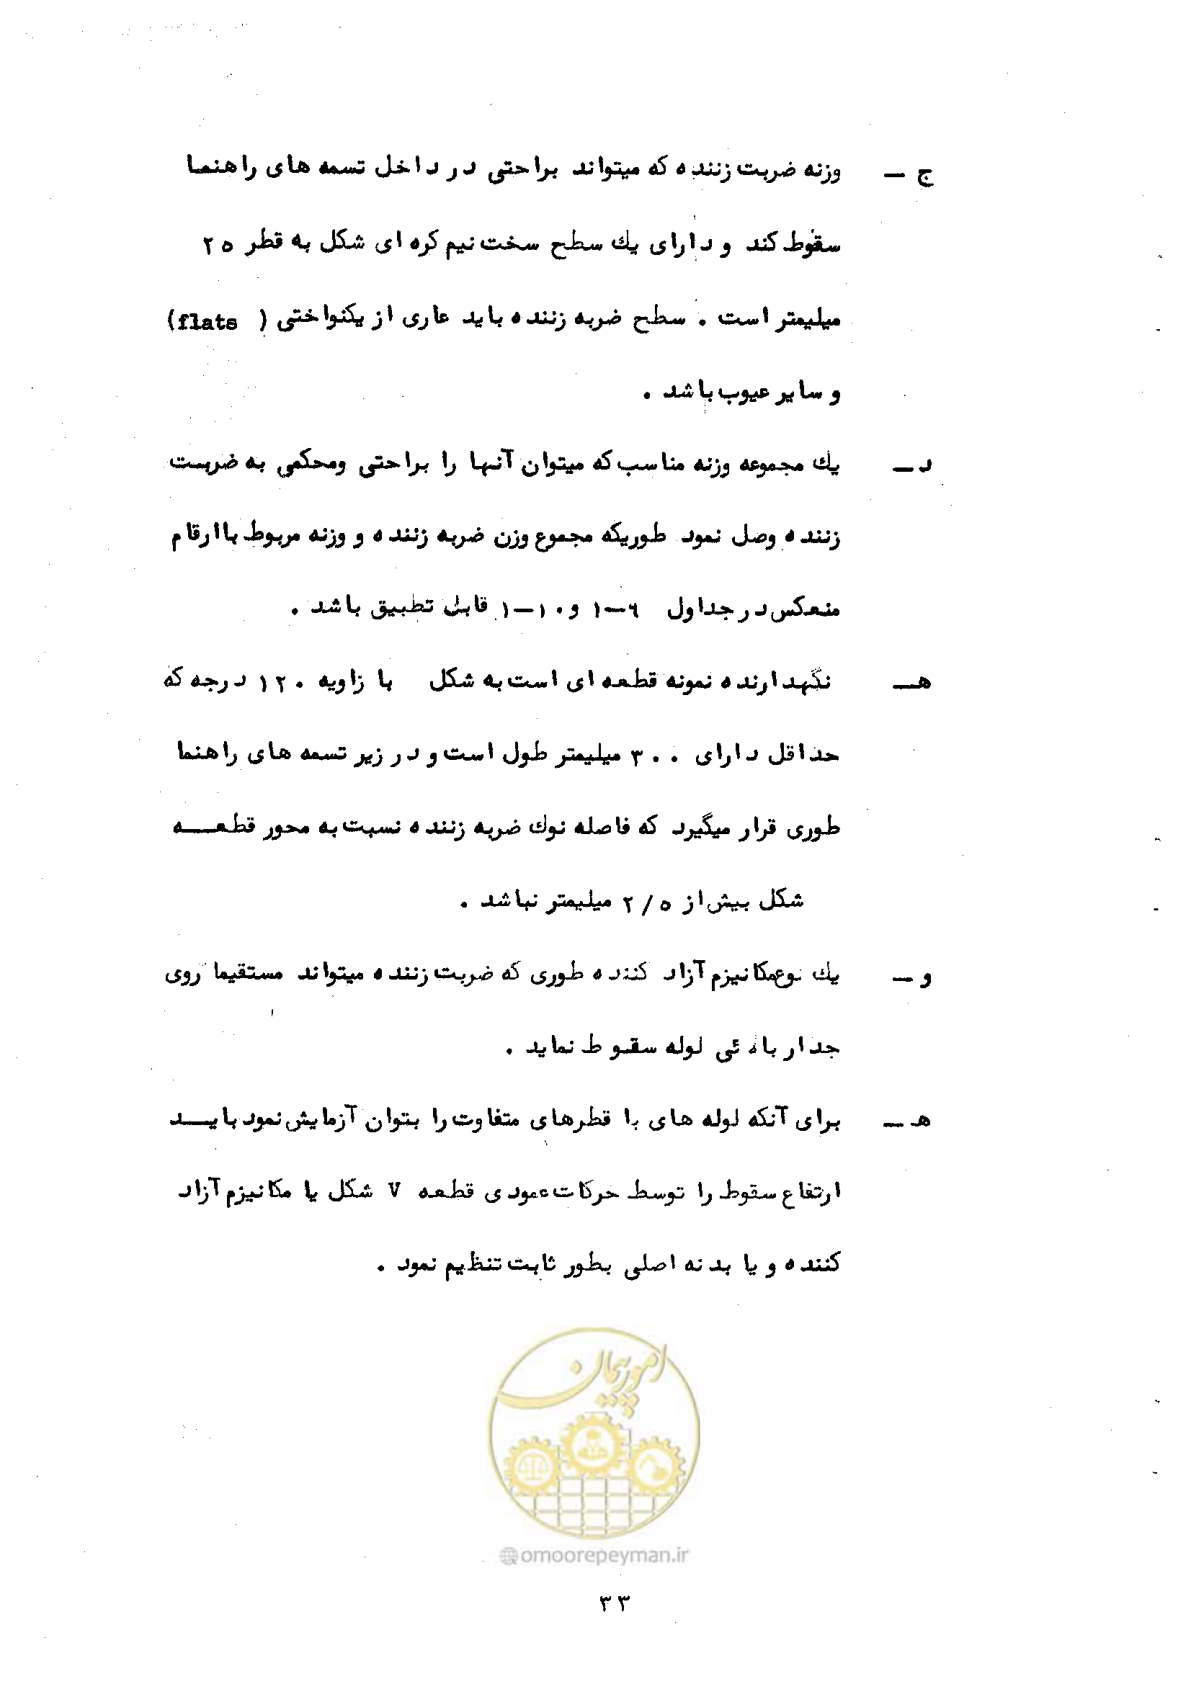 ج – وزنه ضربت زننده که میتواند براحتی در داخل تسمه های راهنما
سقوط کند و دارای یك سطح سخت نیم کره ای شکل به قطر ۲۵
میلیمتر است . سطح ضربه زننده باید عاری از یکنواختی ( flats)
و سایر عیوب باشد .
د – یك مجموعه وزنه مناسب که میتوان آنها را براحتی ومحکمی به ضربت
زننده وصل نمود طوریکه مجموع وزن ضربه زننده و وزنه مربوط با ارقام
منعکس در جداول ۶–۱ و ۱۰–۱ قابل تطبیق باشد .
هـ – نگهدارنده نمونه قطعه ای است به شکل با زاویه ۱۲۰ درجه که
حداقل دارای ۳۰۰ میلیمتر طول است و در زیر تسمه های راهنما
طوری قرار میگیرد که فاصله نوك ضربه زننده نسبت به محور قطعـــه
شکل بیش از ۲/۵ میلیمتر نباشد .
و – یك نوع مکانیزم آزاد کننده طوری که ضربت زننده میتواند مستقیما روی
جدار بالائی لوله سقوط نماید .
هـ – برای آنکه لوله های با قطرهای متفاوت را بتوان آزمایش نمود بایـــد
ارتفاع سقوط را توسط حرکات عمودی قطعه V شکل یا مکانیزم آزاد
کننده و یا بدنه اصلی بطور ثابت تنظیم نمود .
امور پیمان
@omoorepeyman.ir
۳۳